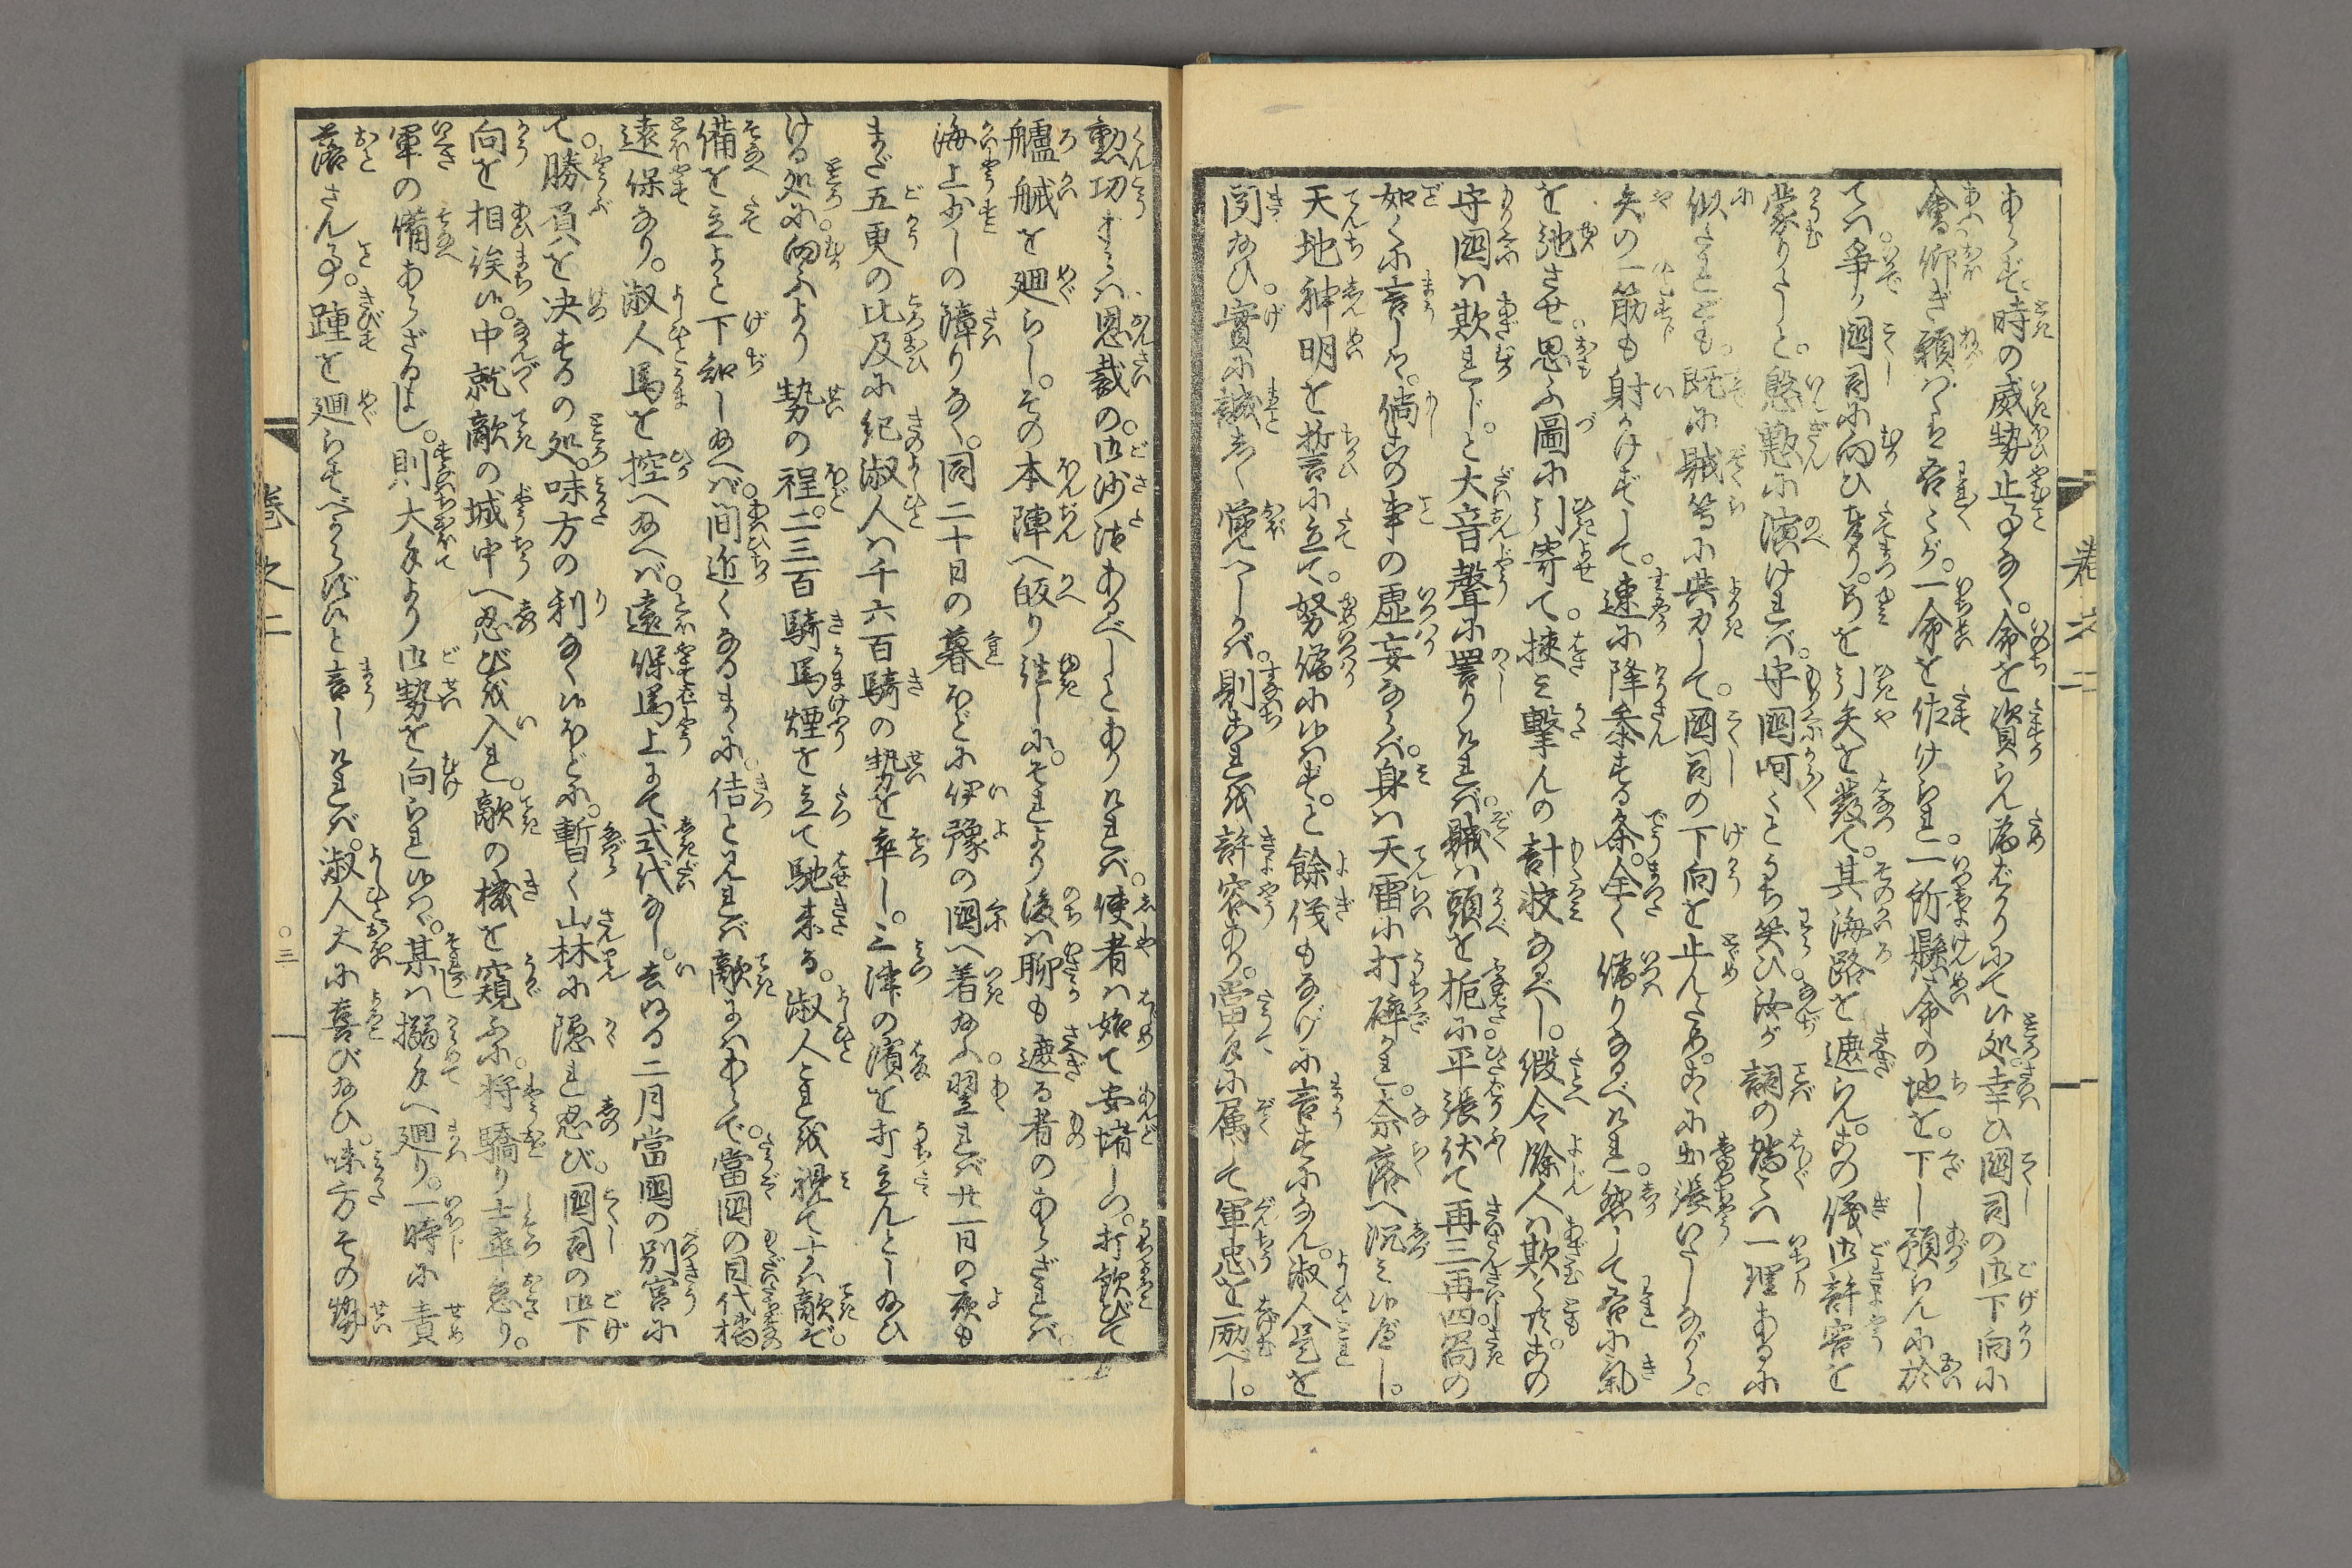 あらず。時の威勢止事なく。命を資らん為ばかりにて候処。幸ひ國司の御下向に
會。仰ぎ願はくは吾々が。一命を佐けられ。一所懸命の地を。下し預らんに於
ては。争か國司に向ひ奉り。弓を引矢を發て。其海路を遮らん。この儀御許容を
蒙りたしと。慇懃に演けれバ。守國呵々とうち笑ひ。汝が詞の端々一理あるに
似たれども。既に賊等に與力して。國司の下向を止んため。こゝに出張いたしながら。
矢の一筋も射かけずして。速に降参する条。全く偽りなるべけれ。然して吾に氣
を弛させ。思ふ圖に引寄て。挟み撃んの計校なるべし。縱令餘人は欺くとも。この
守國は欺れじ。と大音聲に罵りければ。賊は頭を扼に平張伏て再三再四。箇の
如くに言しは。倘この事の虚妄ならば。身は天雷に打碎かれ。奈落へ沉み候べし。
天地神明を哲言に立て。努偽に候はず。と餘儀もなげに言すになん。淑人是を
聞給ひ。實に誠しく覚へしかば。則これを許容あり。當手に属して軍忠を励べし。
勲功すらは恩裁の。御沙汰あるべしとありければ。使者は始て安堵しつ。打歓びて
艫舳を廻らし。その本陣へ皈り徃しに。それより後は聊も遮る者のあらざれば。
海上少しの障りなく。同二十日の暮ほどに伊豫の國へ着給ふ。翌れば廿一日の夜も
まだ五更の比及に紀淑人は千六百騎の勢を率し。三津の濱を打立んとし給ひ
ける処に。向ふより勢の程。二三百騎馬煙を立て馳来る。淑人これを視てすは敵ぞ。
備を立よと下知し給へば。間近くなるまゝに。佶と見れば敵にはあらで。當國の目代橘
遠保なり。淑人馬を控へ給へば。遠保馬上にて式代なし。去ぬる二月當國の別宮に
て。勝負を决するの処。味方の利なく候ほどに。暫く山林に隠れ忍び。國司の御下
向を相俟候。中就敵の城中へ忍びを入れ。敵の機を窺ふに。将驕り士卒怠り。
軍の備あらざるよし。則大手より御勢を向られ候はゞ。某は搦手へ廻り。一時に責
落さん事。踵を廻らすべからず候と言しければ。淑人大に喜び給ひ。味方その勢
巻之二
巻之二
○三